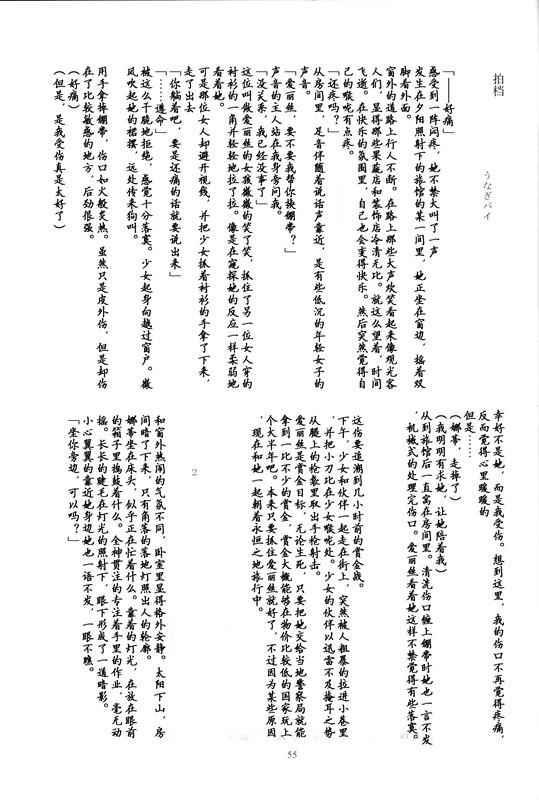 拍档
うなぎパイ
「——好痛」
感受到一阵闷疼，她不禁大叫了一声
发生在夕阳照射下的旅馆的某一间里，她正坐在窗边，摇着双
脚看外面。
窗外的道路上行人不断。在路上那些大声欢笑看起来像观光客
人们，显得那些果蔬店和装饰店冷清无比。就这么望着，时间
飞逝。在快乐的氛围里，自己也会变得快乐。然后突然觉得自
己的喉咙有点疼。
「还疼吗？」
从房间里，足音伴随着说话声靠近，是有些低沉的年轻女子的
声音。
「爱丽丝，要不要我帮你换绷带？」
声音的主人站在我身旁问我。
「没关系，我已经没事了」
这位叫做爱丽丝的女孩微微的笑了笑，抓住了另一位女人穿的
衬衫的一角并轻轻地拉了拉。像是在窥探她的反应一样柔弱地
看着她。
可是那位女人却避开视线，并把少女抓着衬衫的手拿了下来，
走了出去
「你躺着吧，要是还痛的话就要说出来」
「……遵命」
被这么干脆地拒绝，感觉十分落寞。少女起身向越过窗户。微
风吹起她的裙摆，远处传来狗叫。
用手拿掉绷带，伤口如火般炙热。虽然只是皮外伤，但是却伤
在了比较敏感的地方，后劲很强。
（好痛）
（但是，是我受伤真是太好了）
幸好不是她，而是我受伤。想到这里，我的伤口不再觉得疼痛，
反而觉得心里暖暖的
但是……
（娜蒂，走掉了）
（我明明有求她，让她陪着我）
从到旅馆后一直窝在房间里。清洗伤口缠上绷带时她也一言不发
，机械式的处理完伤口。爱丽丝看着她这样不禁觉得有些落寞。
这伤要追溯到几小时前的赏金战。
下午，少女和伙伴一起走在街上，突然被人粗暴的拉进小巷里
，并把小刀比在少女喉咙处。少女的伙伴以迅雷不及掩耳之势
从腿上的枪套里取出手枪射击。
爱丽丝是赏金目标，无论生死，只要把她交给当地警察局就能
拿到一比不少的赏金，赏金大概能够在物价比较低的国家玩上
个大半年吧。本来只要抓住爱丽丝就好了，不过因为某些原因
，现在和她一起朝着永恒之地旅行中。
2
和窗外热闹的气氛不同，卧室里显得格外安静。太阳下山，房
间暗了下来，只有角落的落地灯照出人的轮廓。
娜蒂坐在床头，似乎正在忙着什么。靠着的灯光，在放在眼前
的箱子里捣鼓着什么。全神贯注的专注着手里的作业，毫无动
摇。长长的睫毛在灯光的照射下，眼下形成了一道暗影。
小心翼翼的靠近她身边她也一语不发，一眼不瞧。
「坐你旁边，可以吗？」
55